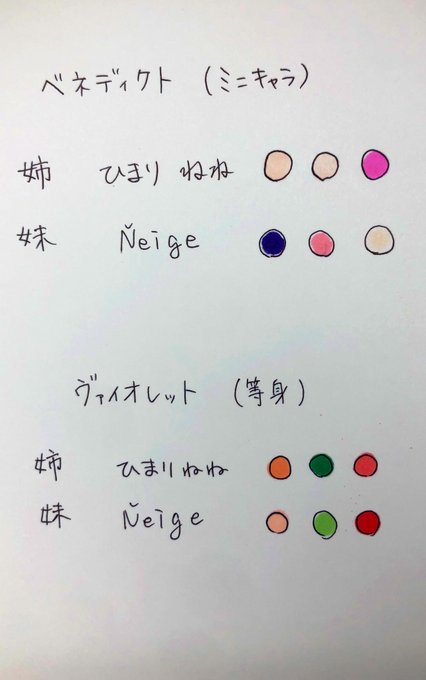 ベネディクト (ミニキャラ)
姉 ひまり ねね
妹 Ňeige
ヴァイオレット (等身)
姉 ひまりねね
妹 Ňeige